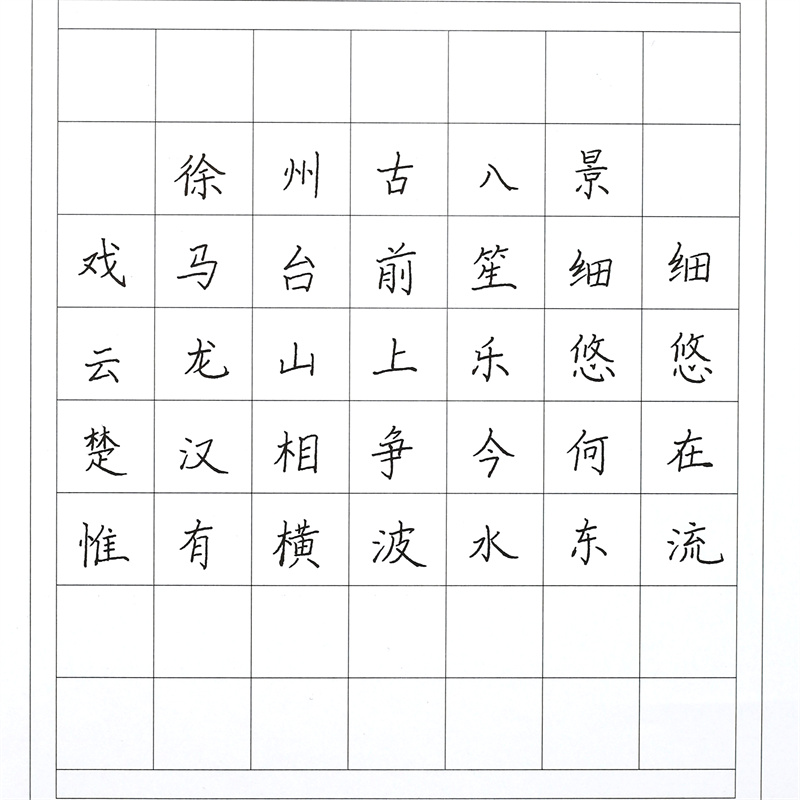 徐州古八景
戏马台前笙细细
云龙山上乐悠悠
楚汉相争今何在
惟有横波水东流